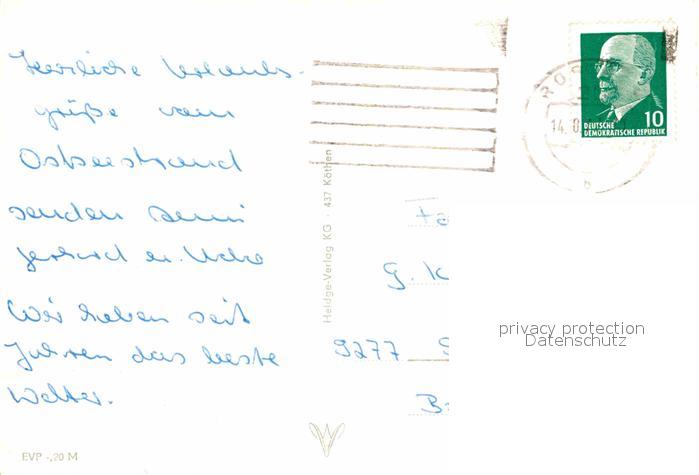 Herzliche Urlaubs-
grüße vom
Ostseestrand
senden
Gerhard u. Uche
Wir haben seit
Jahren das beste
Wetter.
EVP -,20 M
Heldge-Verlag KG · 437 Köthen
ROS
14. 8.
b
10
DEUTSCHE
DEMOKRATISCHE REPUBLIK
Fa
G. K
9277
B
privacy protection
Datenschutz